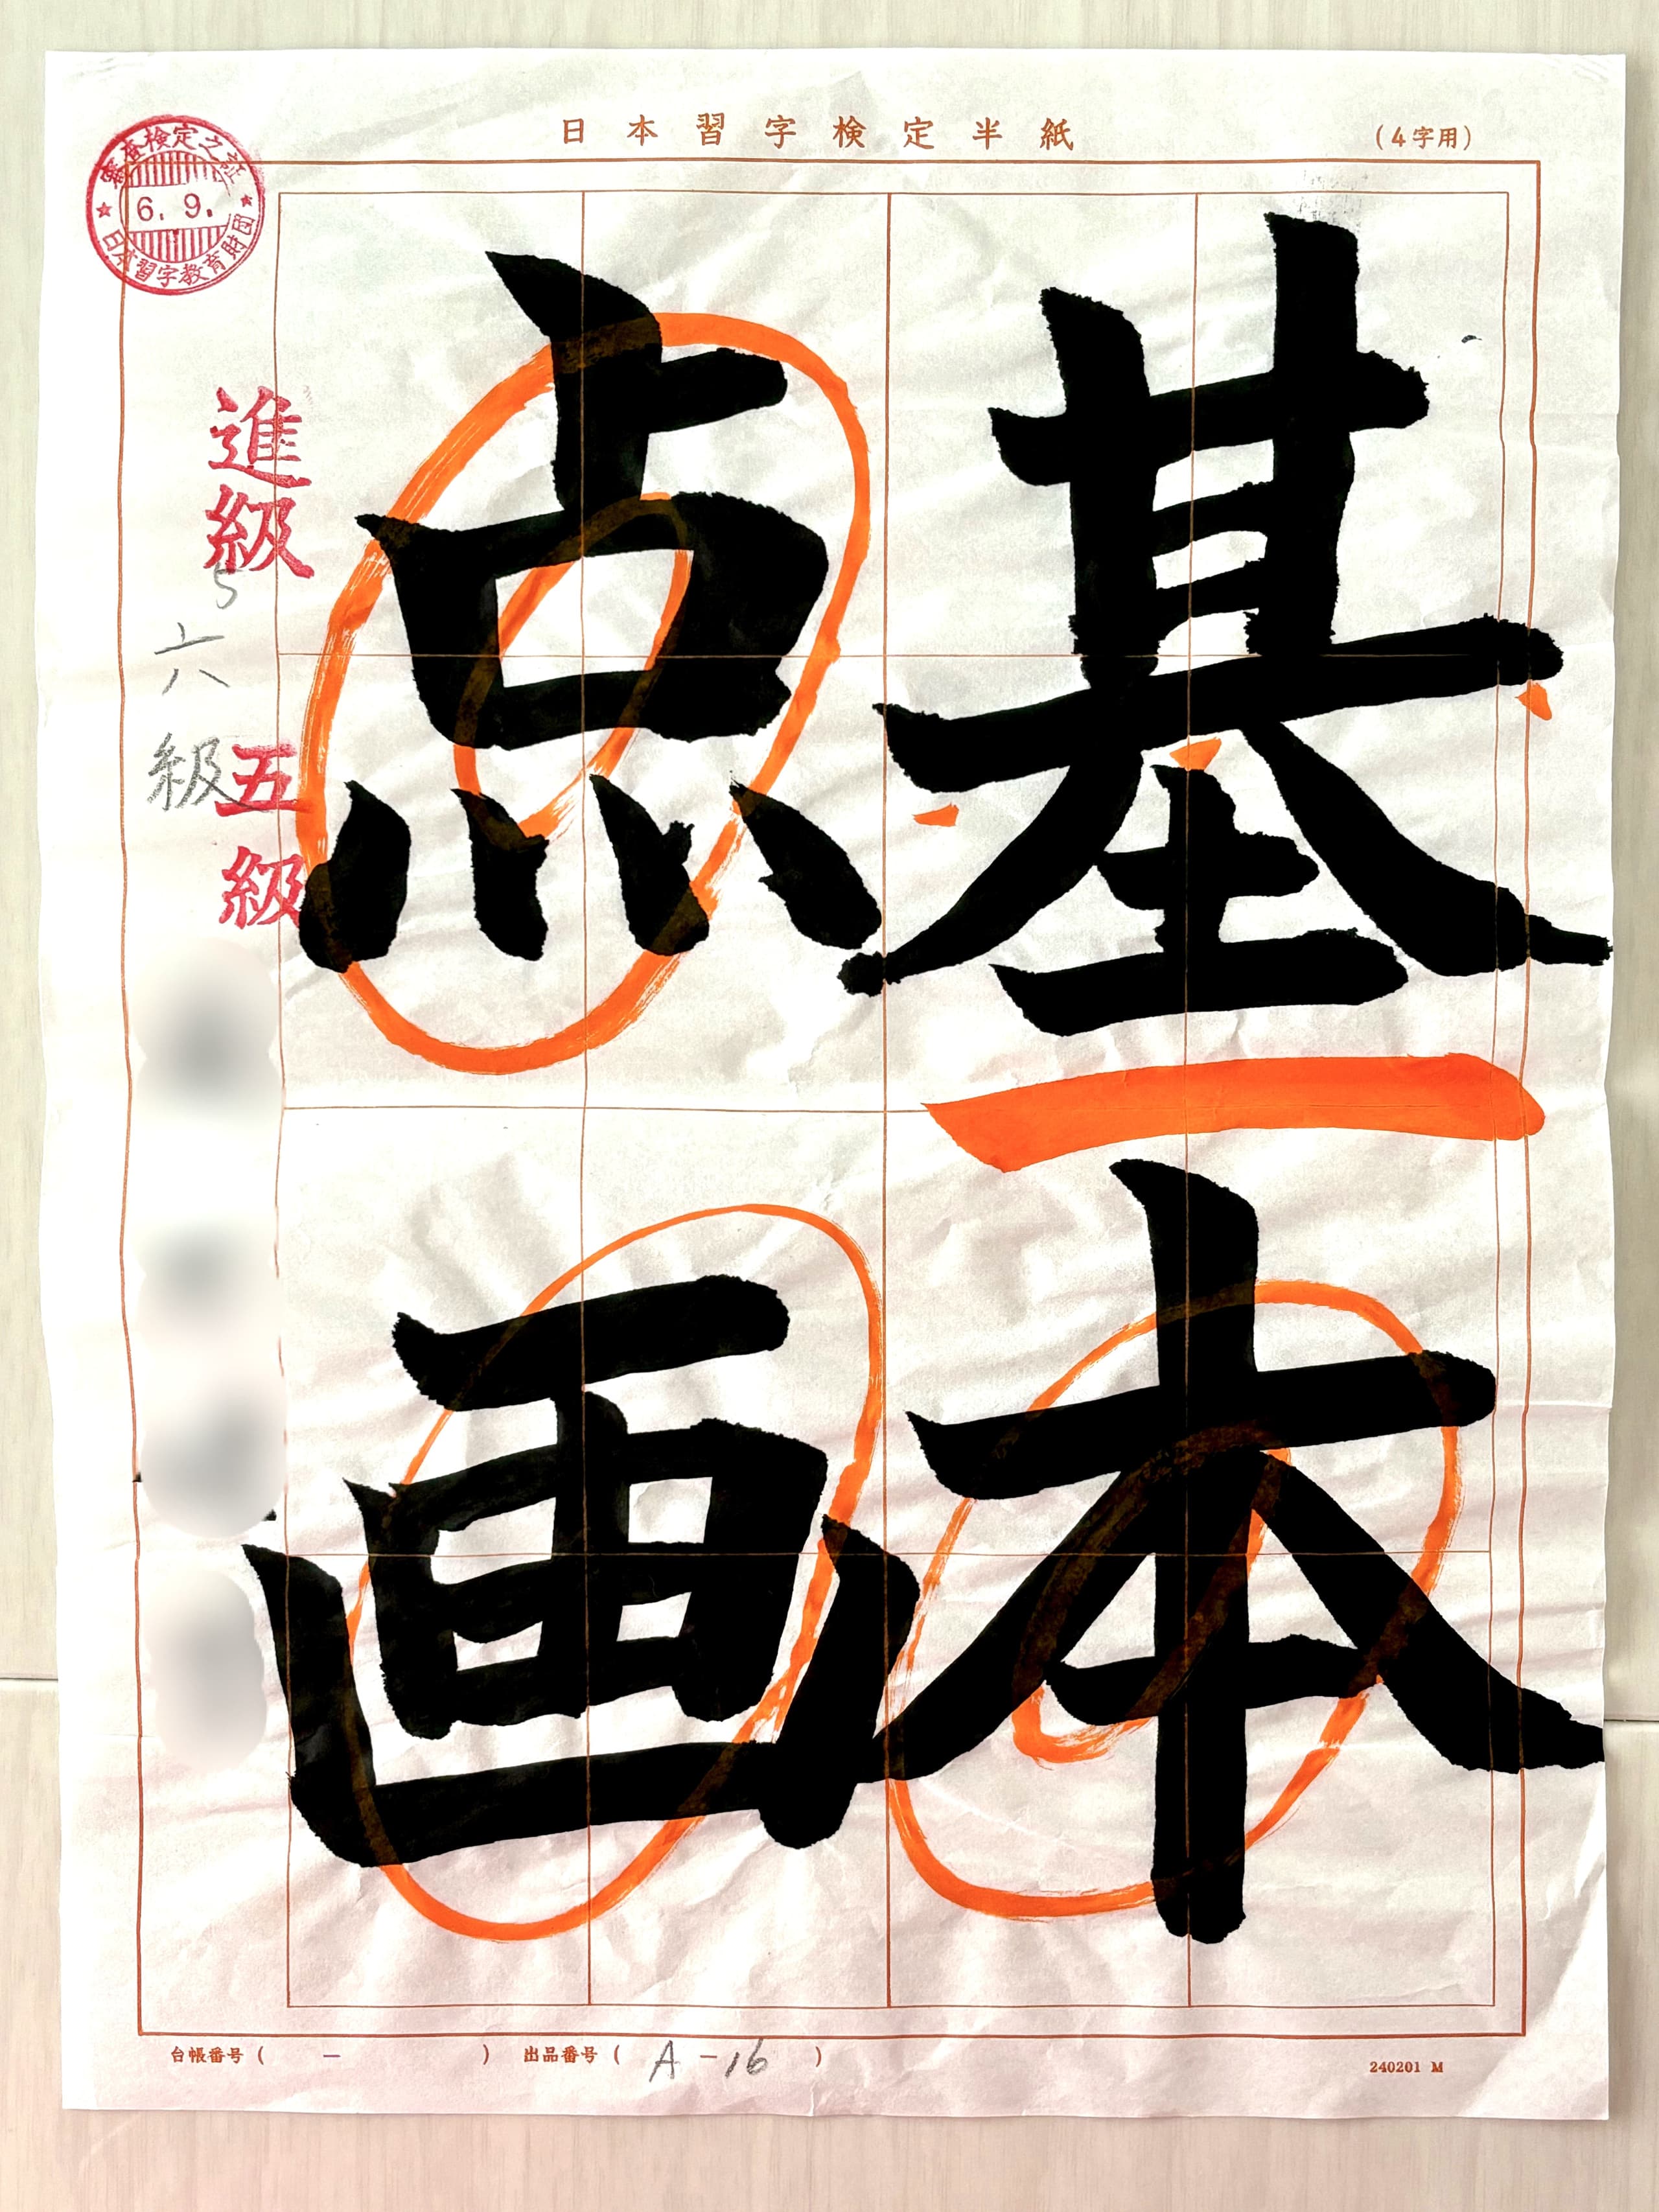 日本習字検定半紙
(4字用)
審査検定之証
6. 9.
日本習字教育財団
基本
点画
進級
五級
5
六級
台帳番号 ( - ) 出品番号 ( A-16 )
240201 M